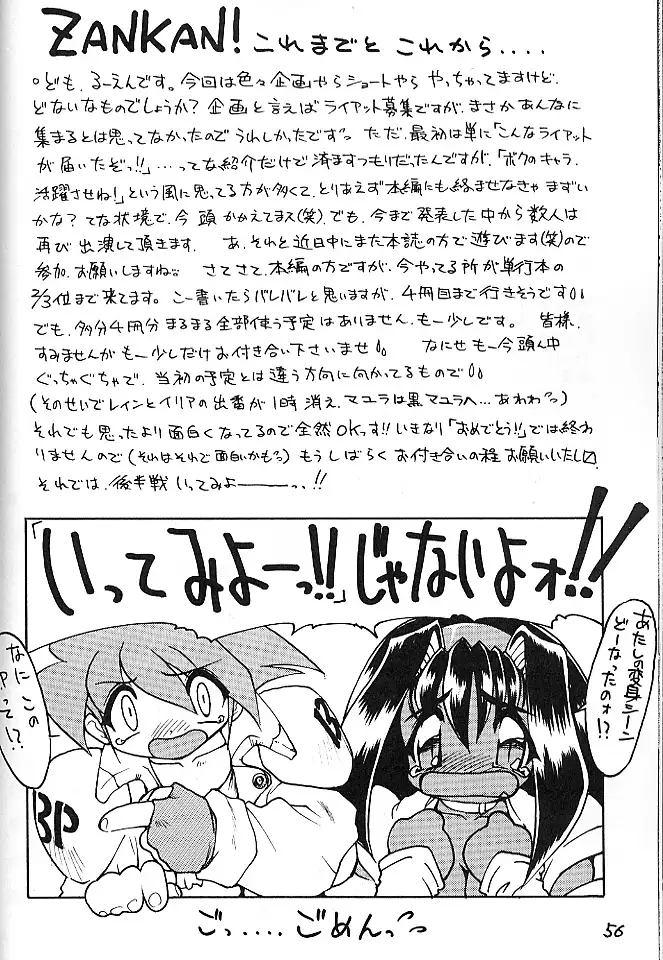 ZANKAN! これまでと これから....
ども、るーえんです。今回は色々企画やらショートやら やっちゃってますけど、
どないなものでしょうか? 企画と言えばライアット募集ですが、まさかあんなに
集まるとは思ってなかったので うれしかったですっ ただ、最初は単に「こんなライアット
が届いたぞっ!!」…ってな紹介だけで済ますつもりだったんですが、「ボクのキャラ
活躍させね!」という風に思ってる方が多くて、とりあえず本編にも絡ませなきゃ まずい
かな? てな状況で、今 頭 かかえてまス(笑)、でも、今まで発表した中から数人は
再び 出演して頂きます。 あ、それと近日中にまた本誌の方で遊びます(笑)ので
参加、お願いしますね さてさて、本編の方ですが、今やってる所が単行本の
2/3位まで来てます。こー書いたらバレバレと思いますが、4冊目まで行きそうです
でも、多分4冊分まるまる全部使う予定はありません、もー少しです。 皆様、
すみませんが もー少しだけ お付き合い下さいませ なにせ もー今 頭ん中
ぐっちゃぐちゃで、当初の予定とは違う方向に向かってるもので
(そのせいでレインとイリアの出番が1時消え、マユラは黒マユラへ…あわわっ)
それでも思ったより面白くなってるので全然OKっす!! いきなり「おめでとう!!」では終わ
りませんので(それはそれで面白いかもっ) もうしばらく お付き合いの程 お願いいたし〼
それでは、後半戦 いってみよーーっ!!
「いってみよーっ!!」じゃないよォ!!
あたしの変身シーン
どーなったのォ!?
なに この
Pって!?
B
BP
ごっ....ごめんっっ
56